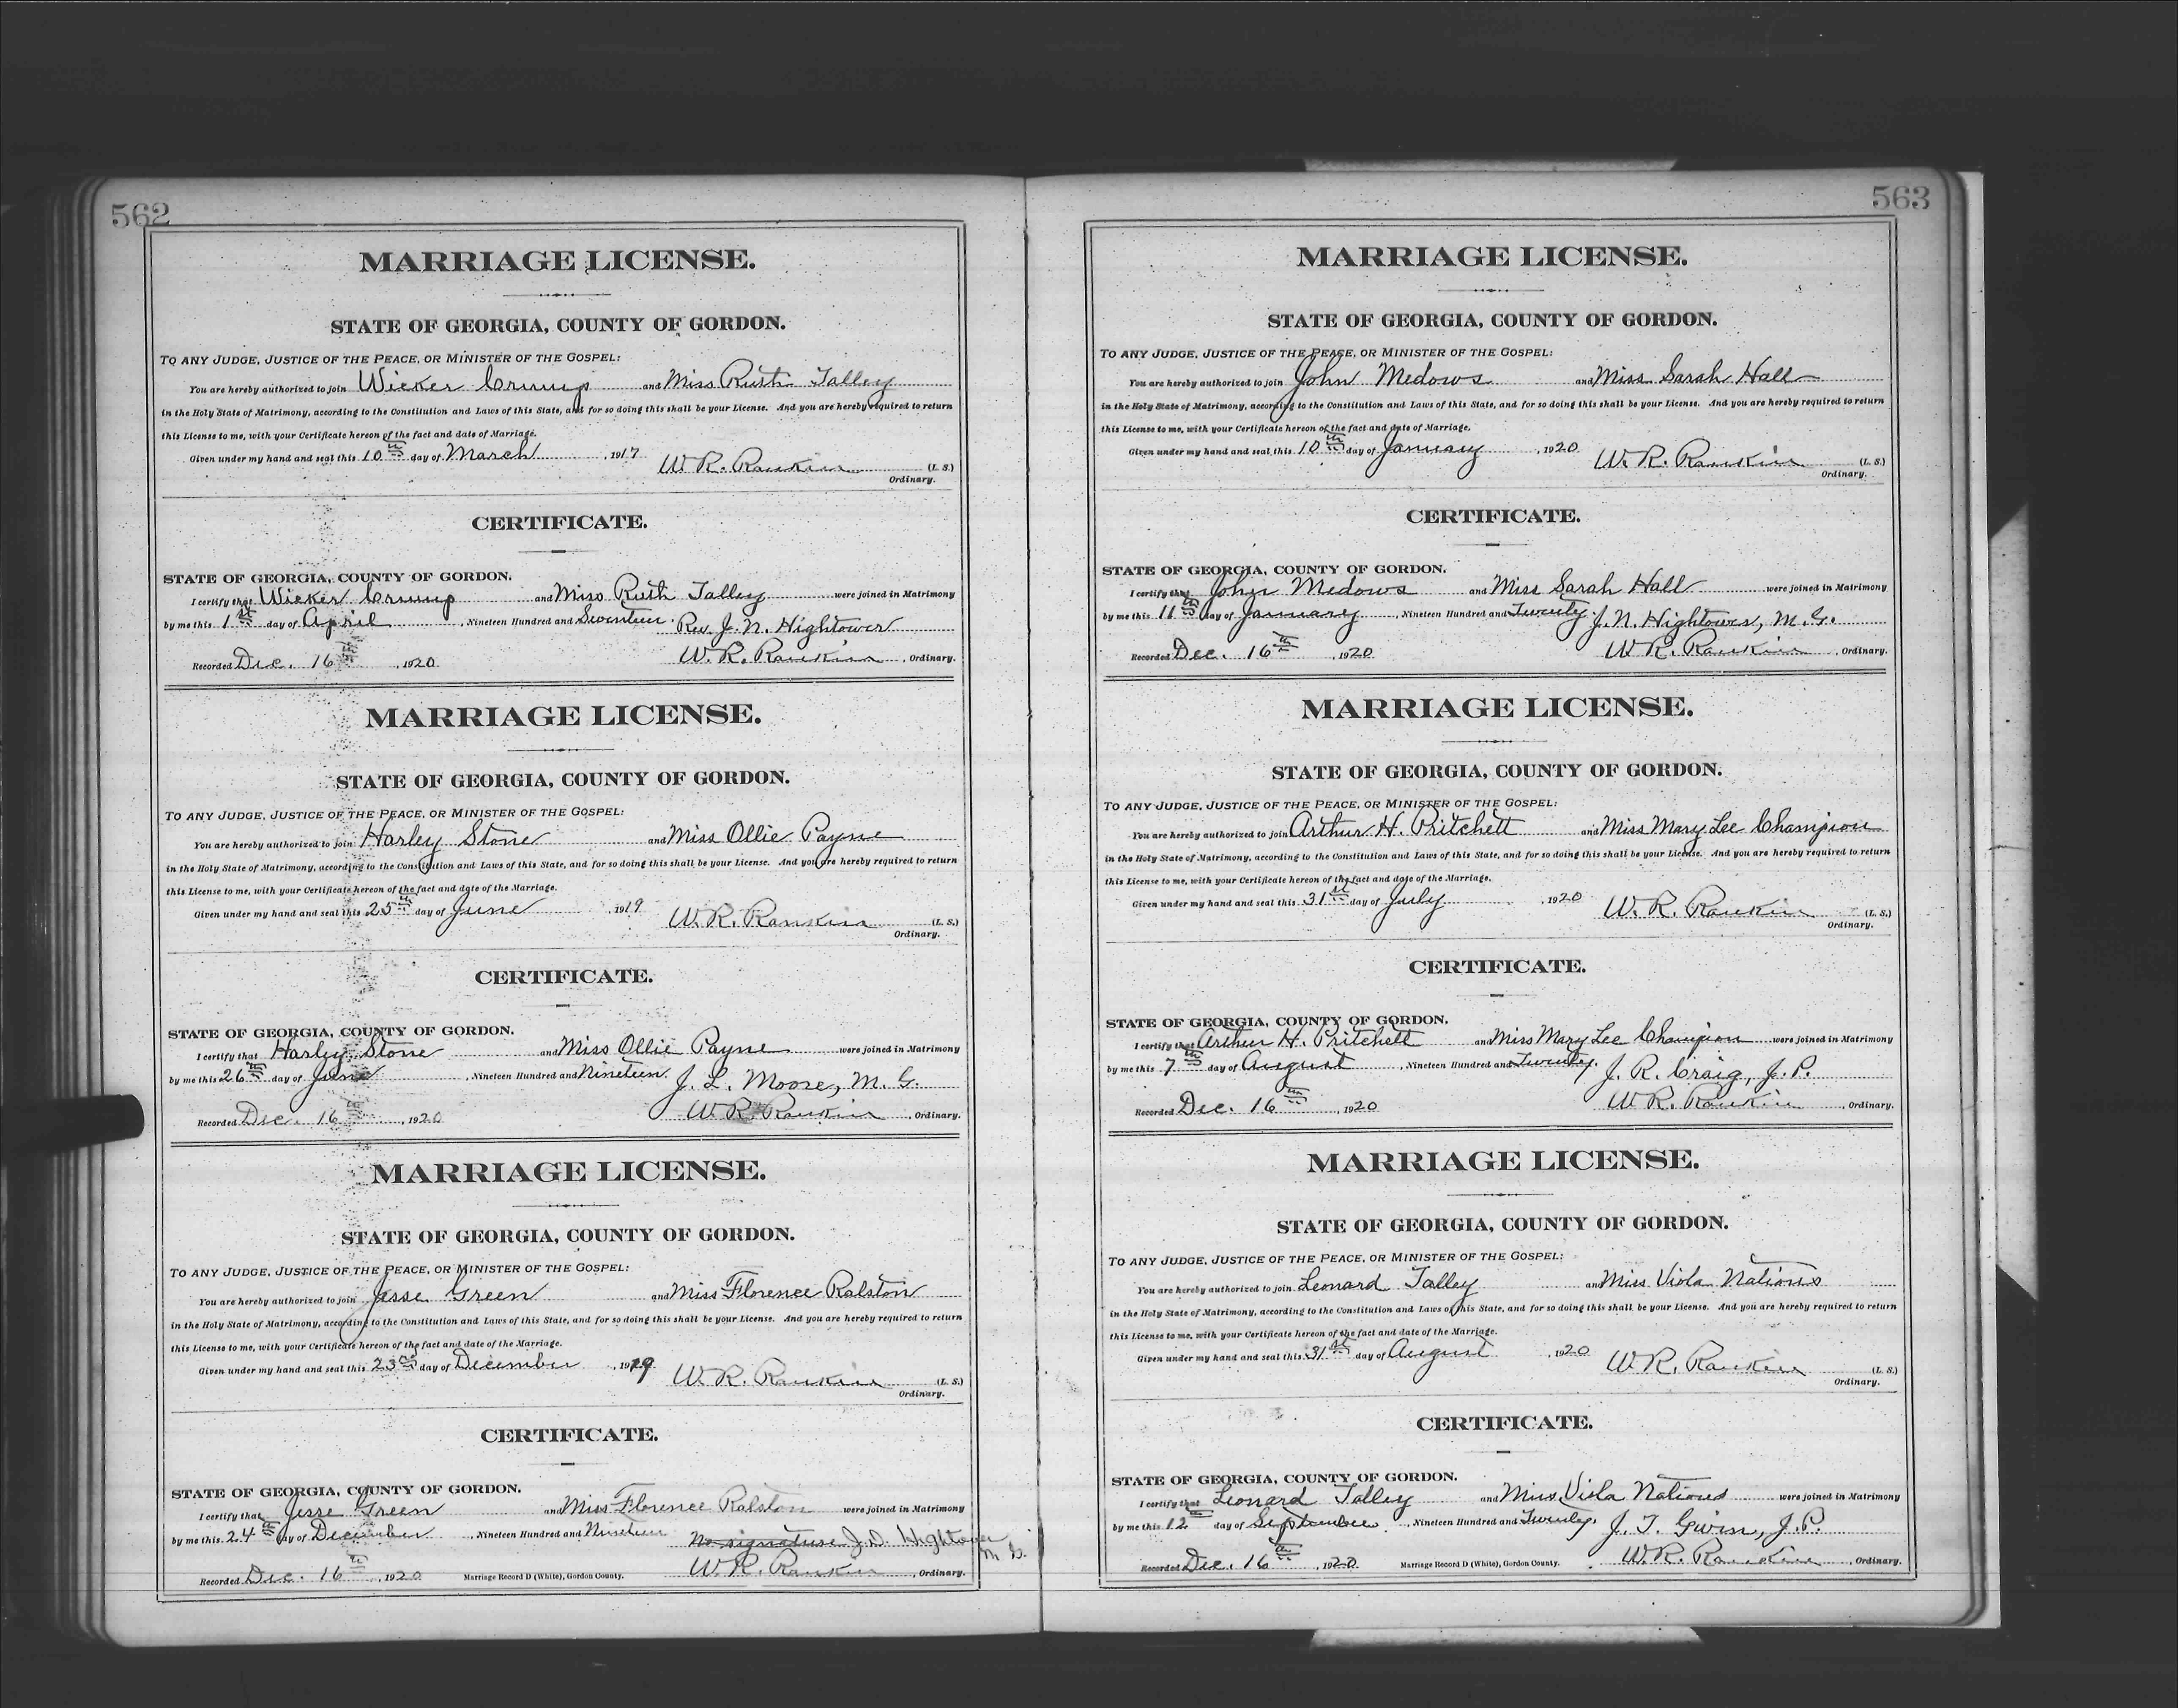 562
MARRIAGE LICENSE.
STATE OF GEORGIA, COUNTY OF GORDON.
TO ANY JUDGE, JUSTICE OF THE PEACE, OR MINISTER OF THE GOSPEL:
You are hereby authorized to join Wicker Crump and Miss Ruth Talley
in the Holy State of Matrimony, according to the Constitution and Laws of this State, and for so doing this shall be your License. And you are hereby required to return
this License to me, with your Certificate hereon of the fact and date of Marriage.
Given under my hand and seal this 10th day of March, 1917 W. R. Rankin (L. S.)
Ordinary.
CERTIFICATE.
STATE OF GEORGIA, COUNTY OF GORDON.
I certify that Wicker Crump and Miss Ruth Talley were joined in Matrimony
by me this 1st day of April, Nineteen Hundred and Seventeen. Rev. J. N. Hightower
Recorded Dec. 16th, 1920. W. R. Rankin, Ordinary.
MARRIAGE LICENSE.
STATE OF GEORGIA, COUNTY OF GORDON.
TO ANY JUDGE, JUSTICE OF THE PEACE, OR MINISTER OF THE GOSPEL:
You are hereby authorized to join Harley Stone and Miss Ollie Payne
in the Holy State of Matrimony, according to the Constitution and Laws of this State, and for so doing this shall be your License. And you are hereby required to return
this License to me, with your Certificate hereon of the fact and date of the Marriage.
Given under my hand and seal this 25th day of June, 1919 W. R. Rankin (L. S.)
Ordinary.
CERTIFICATE.
STATE OF GEORGIA, COUNTY OF GORDON.
I certify that Harley Stone and Miss Ollie Payne were joined in Matrimony
by me this 26th day of June, Nineteen Hundred and Nineteen. J. L. Moore, M. G.
Recorded Dec. 16th, 1920 W. R. Rankin, Ordinary.
MARRIAGE LICENSE.
STATE OF GEORGIA, COUNTY OF GORDON.
TO ANY JUDGE, JUSTICE OF THE PEACE, OR MINISTER OF THE GOSPEL:
You are hereby authorized to join Jesse Green and Miss Florence Ralston
in the Holy State of Matrimony, according to the Constitution and Laws of this State, and for so doing this shall be your License. And you are hereby required to return
this License to me, with your Certificate hereon of the fact and date of the Marriage.
Given under my hand and seal this 23rd day of December, 1919 W. R. Rankin (L. S.)
Ordinary.
CERTIFICATE.
STATE OF GEORGIA, COUNTY OF GORDON.
I certify that Jesse Green and Miss Florence Ralston were joined in Matrimony
by me this 24th day of December, Nineteen Hundred and Nineteen No signature J. D. Hightower
M. G.
Recorded Dec. 16th, 1920 Marriage Record D (White), Gordon County. W. R. Rankin, Ordinary.
563
MARRIAGE LICENSE.
STATE OF GEORGIA, COUNTY OF GORDON.
TO ANY JUDGE, JUSTICE OF THE PEACE, OR MINISTER OF THE GOSPEL:
You are hereby authorized to join John Medows and Miss Sarah Hall
in the Holy State of Matrimony, according to the Constitution and Laws of this State, and for so doing this shall be your License. And you are hereby required to return
this License to me, with your Certificate hereon of the fact and date of Marriage.
Given under my hand and seal this 10th day of January, 1920 W. R. Rankin (L. S.)
Ordinary.
CERTIFICATE.
STATE OF GEORGIA, COUNTY OF GORDON.
I certify that John Medows and Miss Sarah Hall were joined in Matrimony
by me this 11th day of January, Nineteen Hundred and Twenty. J. N. Hightower, M. G.
Recorded Dec. 16th, 1920 W. R. Rankin, Ordinary.
MARRIAGE LICENSE.
STATE OF GEORGIA, COUNTY OF GORDON.
TO ANY JUDGE, JUSTICE OF THE PEACE, OR MINISTER OF THE GOSPEL:
You are hereby authorized to join Arthur H. Pritchett and Miss Mary Lee Champion
in the Holy State of Matrimony, according to the Constitution and Laws of this State, and for so doing this shall be your License. And you are hereby required to return
this License to me, with your Certificate hereon of the fact and date of the Marriage.
Given under my hand and seal this 31st day of July, 1920 W. R. Rankin (L. S.)
Ordinary.
CERTIFICATE.
STATE OF GEORGIA, COUNTY OF GORDON.
I certify that Arthur H. Pritchett and Miss Mary Lee Champion were joined in Matrimony
by me this 7th day of August, Nineteen Hundred and Twenty. J. R. Craig, J. P.
Recorded Dec. 16th, 1920 W. R. Rankin, Ordinary.
MARRIAGE LICENSE.
STATE OF GEORGIA, COUNTY OF GORDON.
TO ANY JUDGE, JUSTICE OF THE PEACE, OR MINISTER OF THE GOSPEL:
You are hereby authorized to join Leonard Talley and Miss Viola Nations
in the Holy State of Matrimony, according to the Constitution and Laws of this State, and for so doing this shall be your License. And you are hereby required to return
this License to me, with your Certificate hereon of the fact and date of the Marriage.
Given under my hand and seal this 31st day of August, 1920 W. R. Rankin (L. S.)
Ordinary.
CERTIFICATE.
STATE OF GEORGIA, COUNTY OF GORDON.
I certify that Leonard Talley and Miss Viola Nations were joined in Matrimony
by me this 12th day of September, Nineteen Hundred and Twenty. J. T. Gwin, J. P.
Recorded Dec. 16th, 1920. Marriage Record D (White), Gordon County. W. R. Rankin, Ordinary.